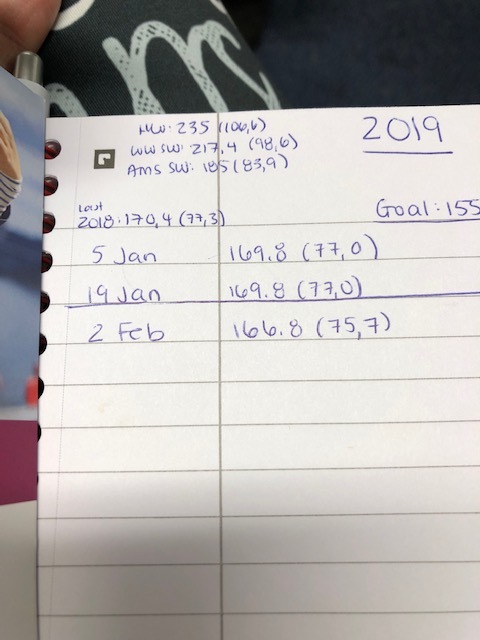 HW: 235 (106,6)
WW SW: 217,4 (98,6)
AMS SW: 185 (83,9)
2019
Last
2018: 170,4 (77,3)
Goal: 155
5 Jan 169.8 (77,0)
19 Jan 169.8 (77,0)
2 Feb 166.8 (75,7)